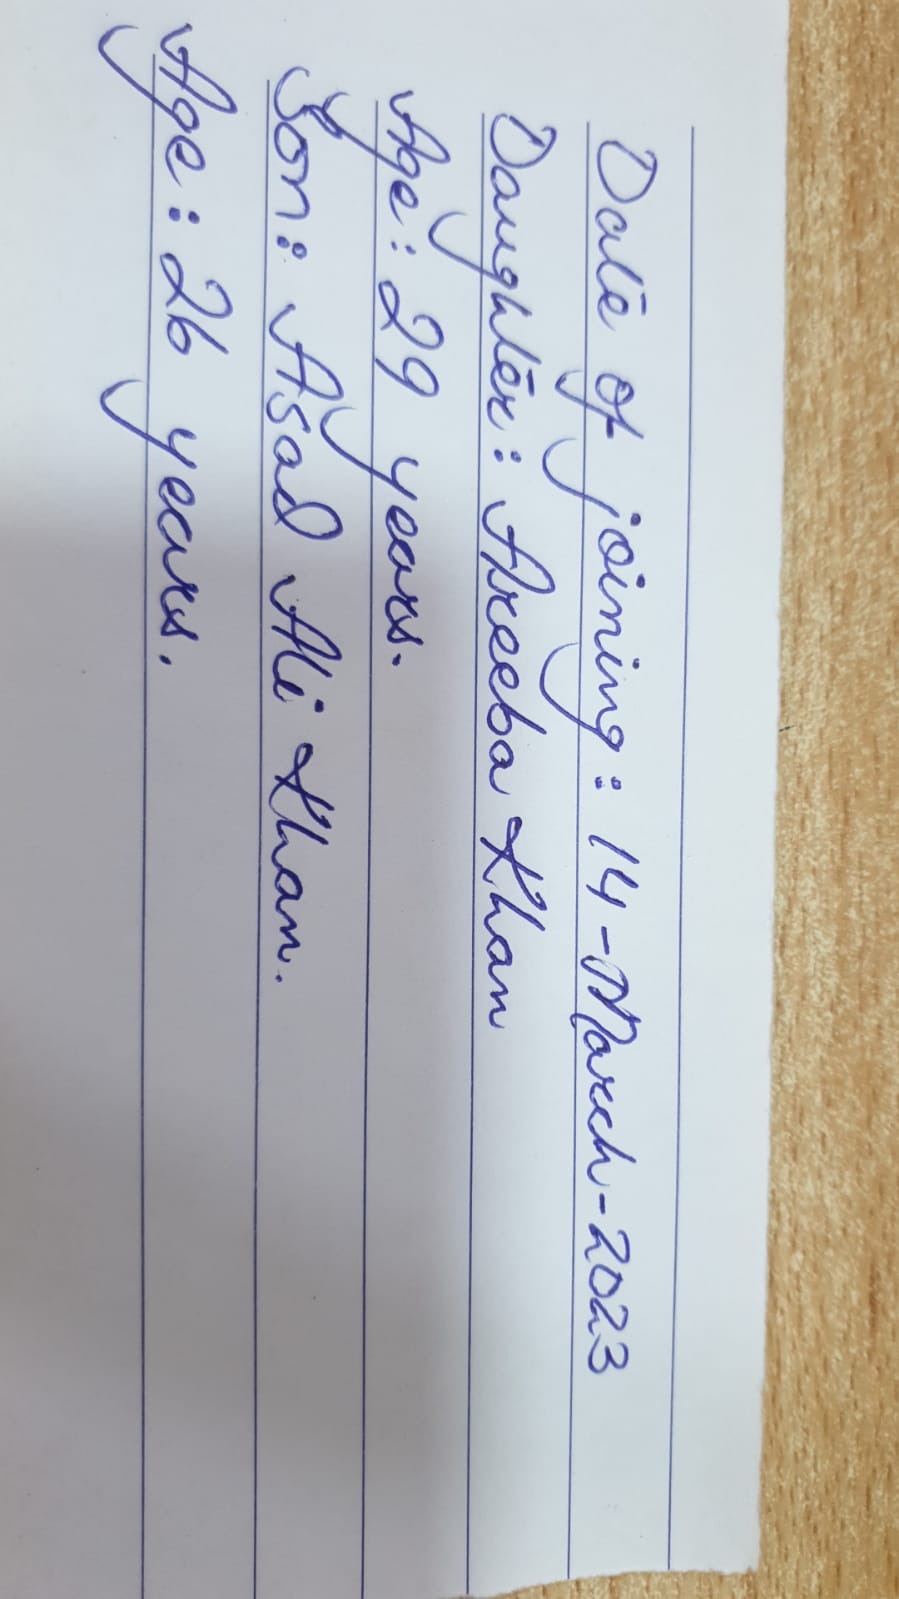 Date of joining: 14-March-2023
Daughter: Areeba Khan
Age: 29 years.
Son: Asad Ali Khan.
Age: 26 years.